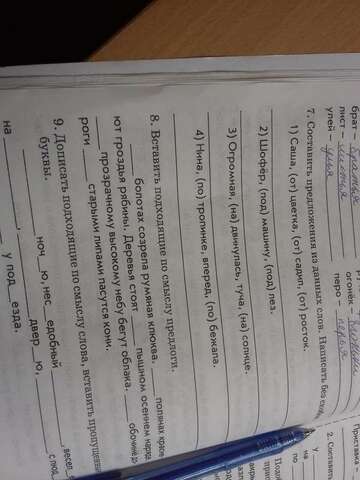 брат – братья
лист – листья
улей – улья
огонёк –
перо – перья
7. Составить предложения из данных слов. Написать без
1) Саша, (от) цветка, (от) садил, (от) росток.
2) Шофёр, (под) машину, (под) лез.
3) Огромная, (на) двинулась, туча, (на) солнце.
4) Нина, (по) тропинке, вперед, (по) бежала.
8. Вставить подходящие по смыслу предлоги.
болотах созрела румяная клюква. полянах
ют гроздья рябины. Деревья стоят пышном осеннем
роги прозрачному высокому небу бегут облака. обочине
старыми липами пасутся кони.
9. Дописать подходящие по смыслу слова, вставить
буквы.
ноч__ю, нес__едобный , весел
, двер__ю, с
на , у под__езда.
Приставка –
2. Составить
у
на
по